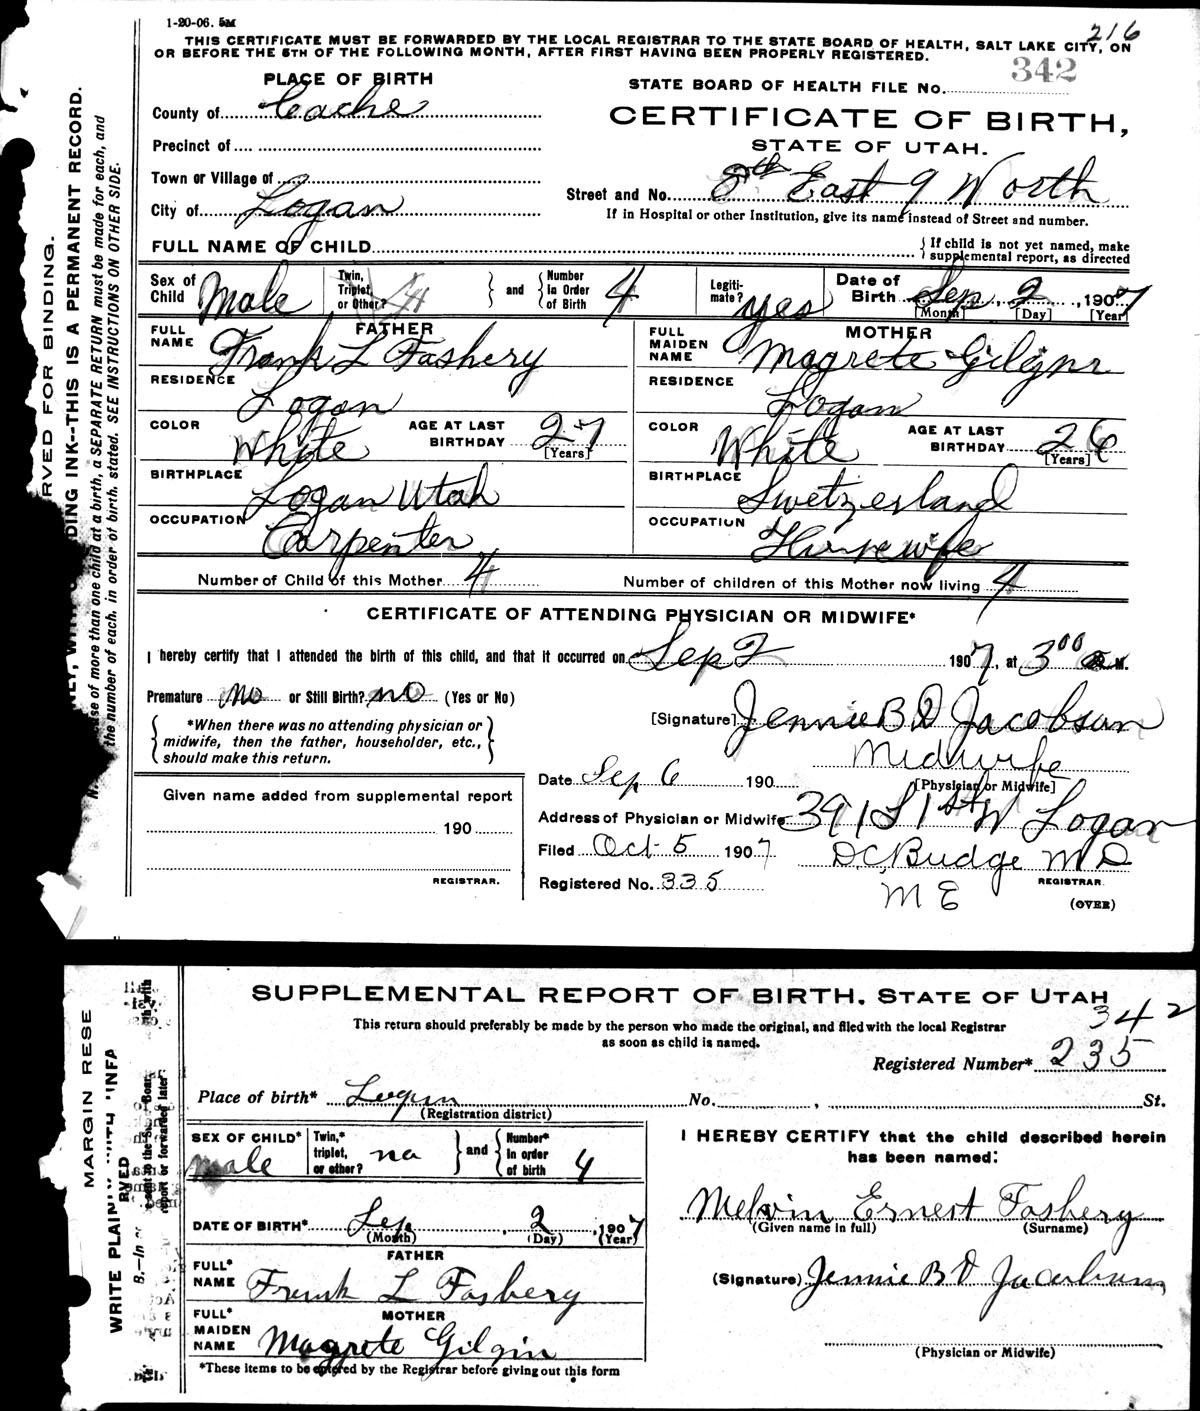 1-20-06. 5M
216
THIS CERTIFICATE MUST BE FORWARDED BY THE LOCAL REGISTRAR TO THE STATE BOARD OF HEALTH, SALT LAKE CITY, ON
OR BEFORE THE 5TH OF THE FOLLOWING MONTH, AFTER FIRST HAVING BEEN PROPERLY REGISTERED.
PLACE OF BIRTH
STATE BOARD OF HEALTH FILE No. 342
County of Cache
CERTIFICATE OF BIRTH,
STATE OF UTAH.
Precinct of
Town or Village of
Street and No. 8th East 9 North
City of Logan
If in Hospital or other Institution, give its name instead of Street and number.
FULL NAME OF CHILD
{ If child is not yet named, make
supplemental report, as directed
Sex of Child Male
Twin, Triplet, or Other?
} and {
Number In Order of Birth 4
Legiti-mate? yes
Date of Birth Sep 2, 1907
[Month] [Day] [Year]
FATHER
MOTHER
FULL NAME Frank L Fashery
FULL MAIDEN NAME Magrete Gilgnr
RESIDENCE Logan
RESIDENCE Logan
COLOR White AGE AT LAST BIRTHDAY 27 [Years]
COLOR White AGE AT LAST BIRTHDAY 26 [Years]
BIRTHPLACE Logan Utah
BIRTHPLACE Swetzerland
OCCUPATION Carpenter
OCCUPATION Housewife
Number of Child of this Mother 4
Number of children of this Mother now living 4
CERTIFICATE OF ATTENDING PHYSICIAN OR MIDWIFE*
I hereby certify that I attended the birth of this child, and that it occurred on Sep 2 1907, at 3 00 M.
Premature no or Still Birth? no (Yes or No)
[Signature] Jennie B D Jacobsen
Midwife
[Physician or Midwife]
{ *When there was no attending physician or
midwife, then the father, householder, etc.,
should make this return. }
Date Sep 6 190
Given name added from supplemental report
Address of Physician or Midwife 391 S 1st W Logan
190
Filed Oct 5 1907
D.C. Budge M D
REGISTRAR.
REGISTRAR
Registered No. 335
M E
(OVER)
RVED FOR BINDING.
DING INK--THIS IS A PERMANENT RECORD.
se of more than one child at a birth, a SEPARATE RETURN must be made for each, and
the number of each, in order of birth, stated. SEE INSTRUCTIONS ON OTHER SIDE.
SUPPLEMENTAL REPORT OF BIRTH. STATE OF UTAH
342
This return should preferably be made by the person who made the original, and filed with the local Registrar
as soon as child is named.
Registered Number* 235
Place of birth* Logan No. , St.
(Registration district)
SEX OF CHILD* Male
Twin,* triplet, or other? no
} and {
Number* In order of birth 4
I HEREBY CERTIFY that the child described herein
has been named:
DATE OF BIRTH* Sep, 2, 1907
(Month) (Day) (Year)
Melvin Ernest Fashery
(Given name in full) (Surname)
FATHER
FULL* NAME Frank L Fashery
(Signature) Jennie B D Jacobsen
MOTHER
FULL* MAIDEN NAME Magrete Gilgin
(Physician or Midwife)
*These items to be entered by the Registrar before giving out this form
MARGIN RESE
RVED
WRITE PLAIN